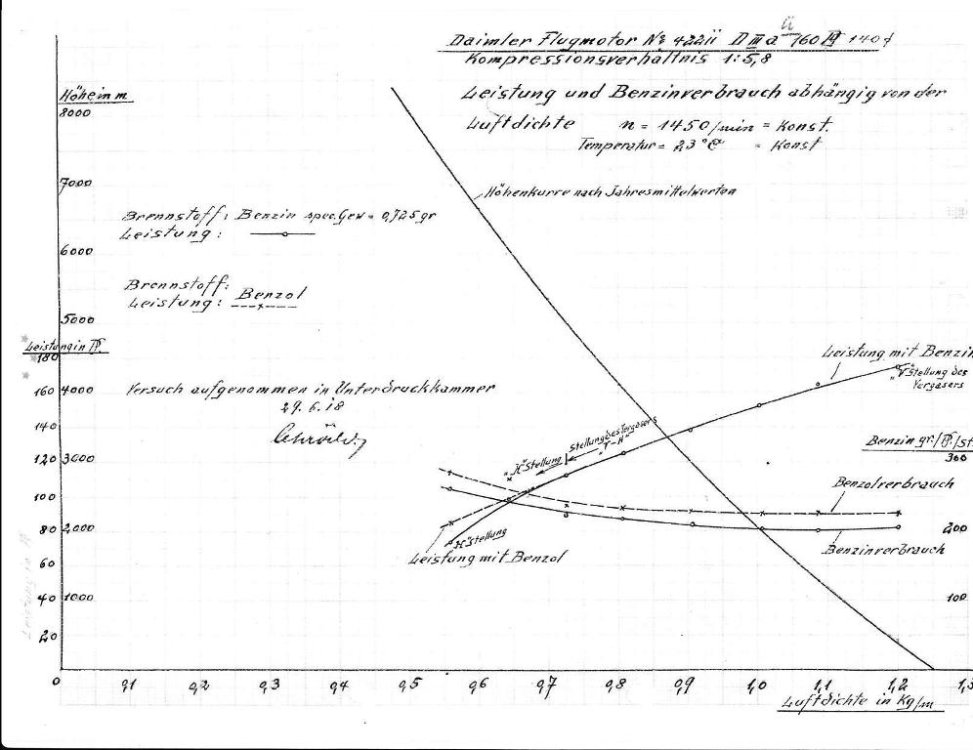 ü
Daimler Flugmotor № 42211 D III a 160 PS 1404
Kompressionsverhältnis 1:5,8
Leistung und Benzinverbrauch abhängig von der
Luftdichte n = 1450/min = Konst.
Temperatur = 23°C = Konst
Höhe in m
8000
7000
6000
5000
4000
3000
2000
1000
Höhenkurve nach Jahresmittelwerten
Brennstoff: Benzin spec. Gew = 0,725 gr
Leistung:
Brennstoff: Benzol
Leistung:
Leistung in PS.
180
160
140
120
100
80
60
40
20
Versuch aufgenommen in Unterdruckkammer
29. 6. 18
Leistung mit Benzin
"V" Stellung des
Vergasers
Stellung des Vergasers
"V-H"
"H" Stellung
"H" Stellung
Leistung mit Benzol
Benzin gr/PS/St
300
200
100
Benzolverbrauch
Benzinverbrauch
0 0,1 0,2 0,3 0,4 0,5 0,6 0,7 0,8 0,9 1,0 1,1 1,2 1,3
Luftdichte in Kg/m